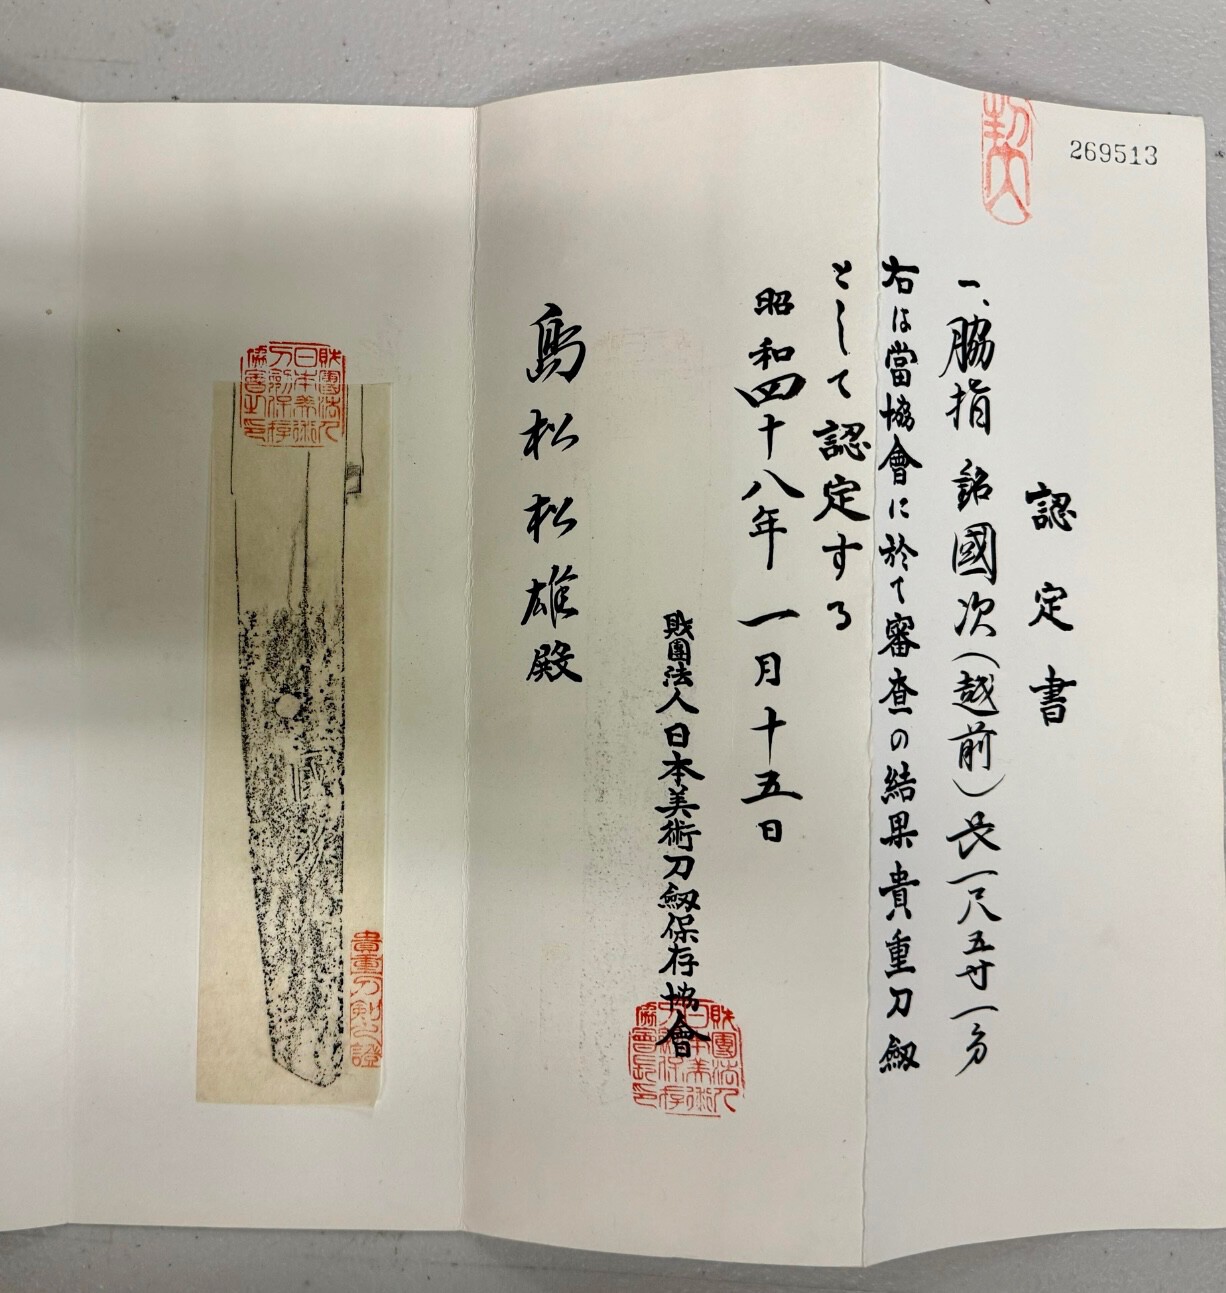 269513
認定書
一、脇指 銘國次（越前）長一尺五寸一分
右は當協會に於て審査の結果貴重刀劔
として認定する
昭和四十八年一月十五日
財團法人日本美術刀劔保存協會
財團法人日本美術刀剣保存協會長印
島松松雄殿
財團法人日本美術刀剣保存協會之印
貴重刀剣之證